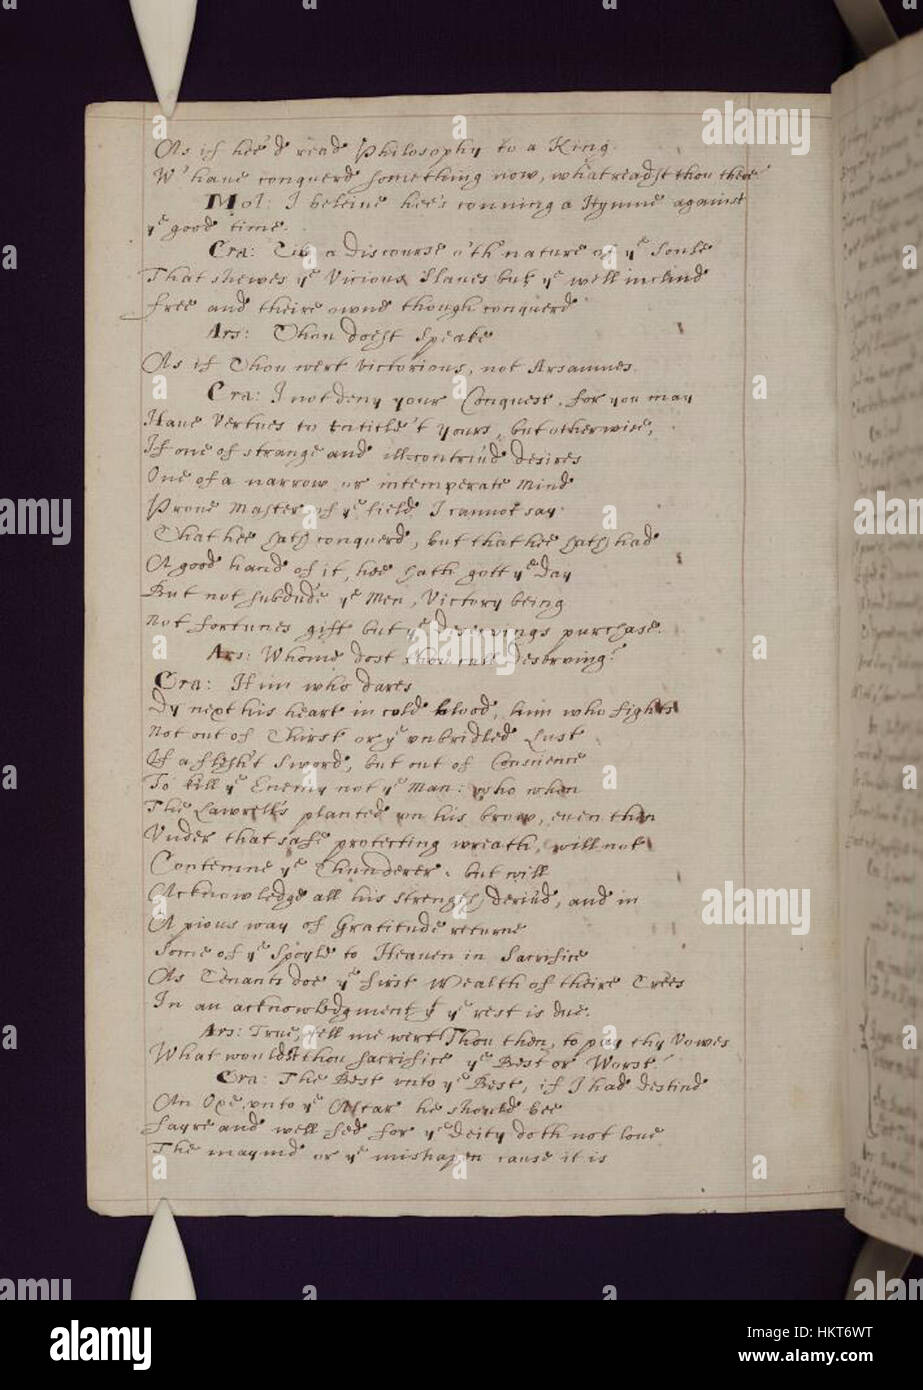 As if hee'd read Philosophy to a King.
W'haue conquerd something now, what readst thou there?
Mol: I beleiue hee's conning a Hymne against
yᵉ good time.
Cra: Tis a discourse o'th nature of yᵉ Soule
That shewes yᵉ Vicious Slaues but yᵉ well inclind
free and theire owne though conquerd
Ars: Thou doest Speake
As if Thou wert victorious, not Arsamnes.
Cra: I not deny your Conquest, for you may
Haue Vertues to entitle't yours, but otherwise,
If one of strange and ill-contriu'd desires
One of a narrow or intemperate mind
Proue Master of yᵉ field I cannot say
That hee hath conquerd, but that hee hath had
A good hand of it, hee hath gott yᵉ day
But not subdude yᵉ Men, Victory being
Not fortunes gift but yᵉ deseruings purchase.
Ars: Whome dost thou call deserving?
Cra: Him who dares
Dy next his heart in cold blood, him who fights
Not out of Thirst or yᵉ vnbridled Lust
Of a flesh't Sword, but out of Conscience
To kill yᵉ Enemy not yᵉ Man: who when
The Lawrell's planted on his brow, euen then
Vnder that safe protecting wreath, will not
Contemne yᵉ Thunderer, but will
Acknowledge all his strength deriu'd, and in
A pious way of Gratitude returne
Some of yᵉ Spoyle to Heauen in Sacrifice
As Tenants doe yᵉ first Wealth of theire Trees
In an acknowledgment yᵗ yᵉ rest is due.
Ars: True, tell me wert Thou then, to pay thy Vowes
What wouldst thou sacrifice yᵉ Best or Worst?
Cra: The Best vnto yᵉ Best, if I had destind
An Oxe vnto yᵉ Altar he should bee
fayre and well fed for yᵉ Deity doth not loue
The maymd or yᵉ mishapen cause it is
alamy
Image ID: HKT6WT
www.alamy.com